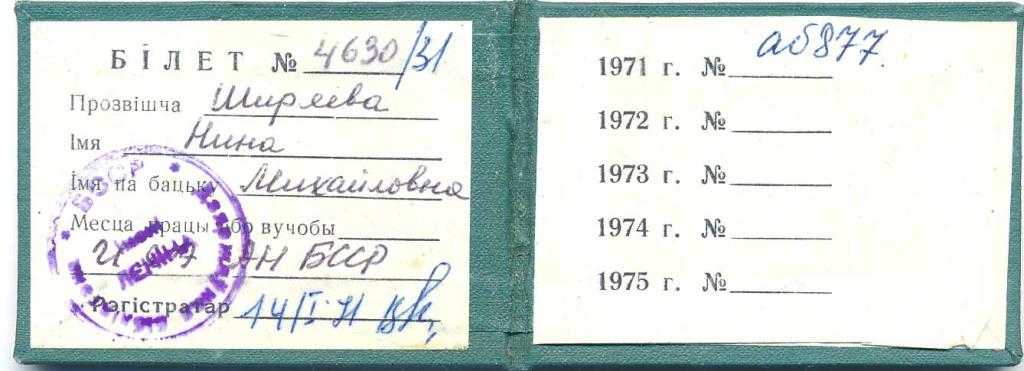 БІЛЕТ № 4630/31
Прозвішча Ширяева
Імя Нина
Імя па бацьку Михайловна
Месца працы або вучобы
АН БССР
Рэгістратар 14/I 71
БССР
ЛЕНІНА
аб877.
1971 г. №
1972 г. №
1973 г. №
1974 г. №
1975 г. №